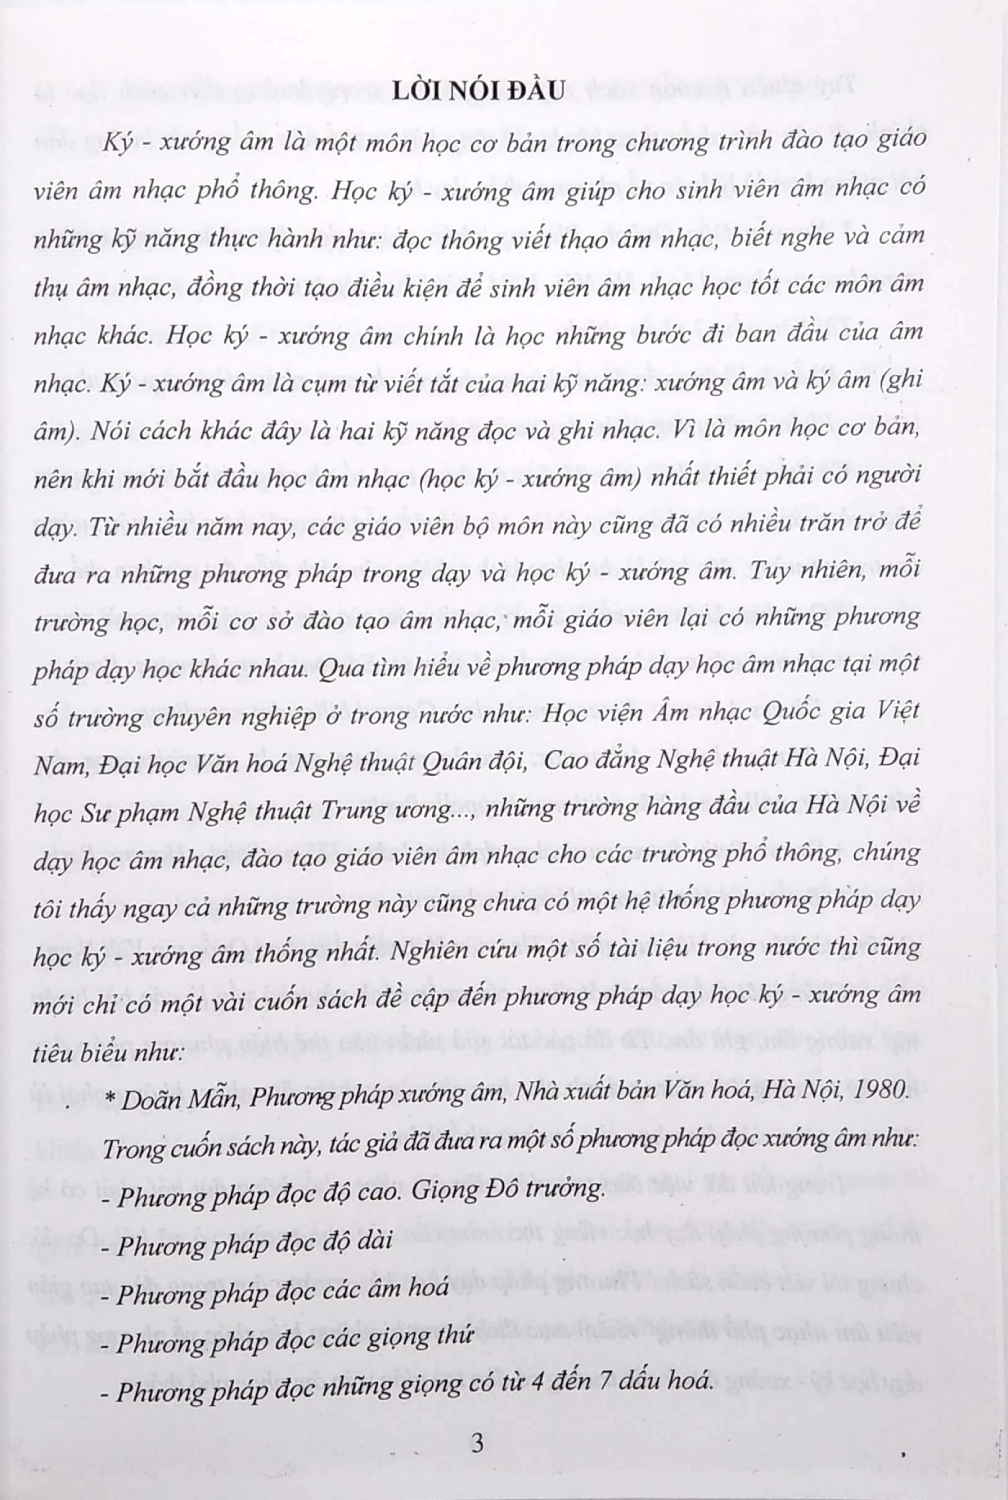 LỜI NÓI ĐẦU
Ký - xướng âm là một môn học cơ bản trong chương trình đào tạo giáo
viên âm nhạc phổ thông. Học ký - xướng âm giúp cho sinh viên âm nhạc có
những kỹ năng thực hành như: đọc thông viết thạo âm nhạc, biết nghe và cảm
thụ âm nhạc, đồng thời tạo điều kiện để sinh viên âm nhạc học tốt các môn âm
nhạc khác. Học ký - xướng âm chính là học những bước đi ban đầu của âm
nhạc. Ký - xướng âm là cụm từ viết tắt của hai kỹ năng: xướng âm và ký âm (ghi
âm). Nói cách khác đây là hai kỹ năng đọc và ghi nhạc. Vì là môn học cơ bản,
nên khi mới bắt đầu học âm nhạc (học ký - xướng âm) nhất thiết phải có người
dạy. Từ nhiều năm nay, các giáo viên bộ môn này cũng đã có nhiều trăn trở để
đưa ra những phương pháp trong dạy và học ký - xướng âm. Tuy nhiên, mỗi
trường học, mỗi cơ sở đào tạo âm nhạc, mỗi giáo viên lại có những phương
pháp dạy học khác nhau. Qua tìm hiểu về phương pháp dạy học âm nhạc tại một
số trường chuyên nghiệp ở trong nước như: Học viện Âm nhạc Quốc gia Việt
Nam, Đại học Văn hoá Nghệ thuật Quân đội, Cao đẳng Nghệ thuật Hà Nội, Đại
học Sư phạm Nghệ thuật Trung ương..., những trường hàng đầu của Hà Nội về
dạy học âm nhạc, đào tạo giáo viên âm nhạc cho các trường phổ thông, chúng
tôi thấy ngay cả những trường này cũng chưa có một hệ thống phương pháp dạy
học ký - xướng âm thống nhất. Nghiên cứu một số tài liệu trong nước thì cũng
mới chỉ có một vài cuốn sách đề cập đến phương pháp dạy học ký - xướng âm
tiêu biểu như:
* Doãn Mẫn, Phương pháp xướng âm, Nhà xuất bản Văn hoá, Hà Nội, 1980.
Trong cuốn sách này, tác giả đã đưa ra một số phương pháp đọc xướng âm như:
- Phương pháp đọc độ cao. Giọng Đô trưởng.
- Phương pháp đọc độ dài
- Phương pháp đọc các âm hoá
- Phương pháp đọc các giọng thứ
- Phương pháp đọc những giọng có từ 4 đến 7 dấu hoá.
3